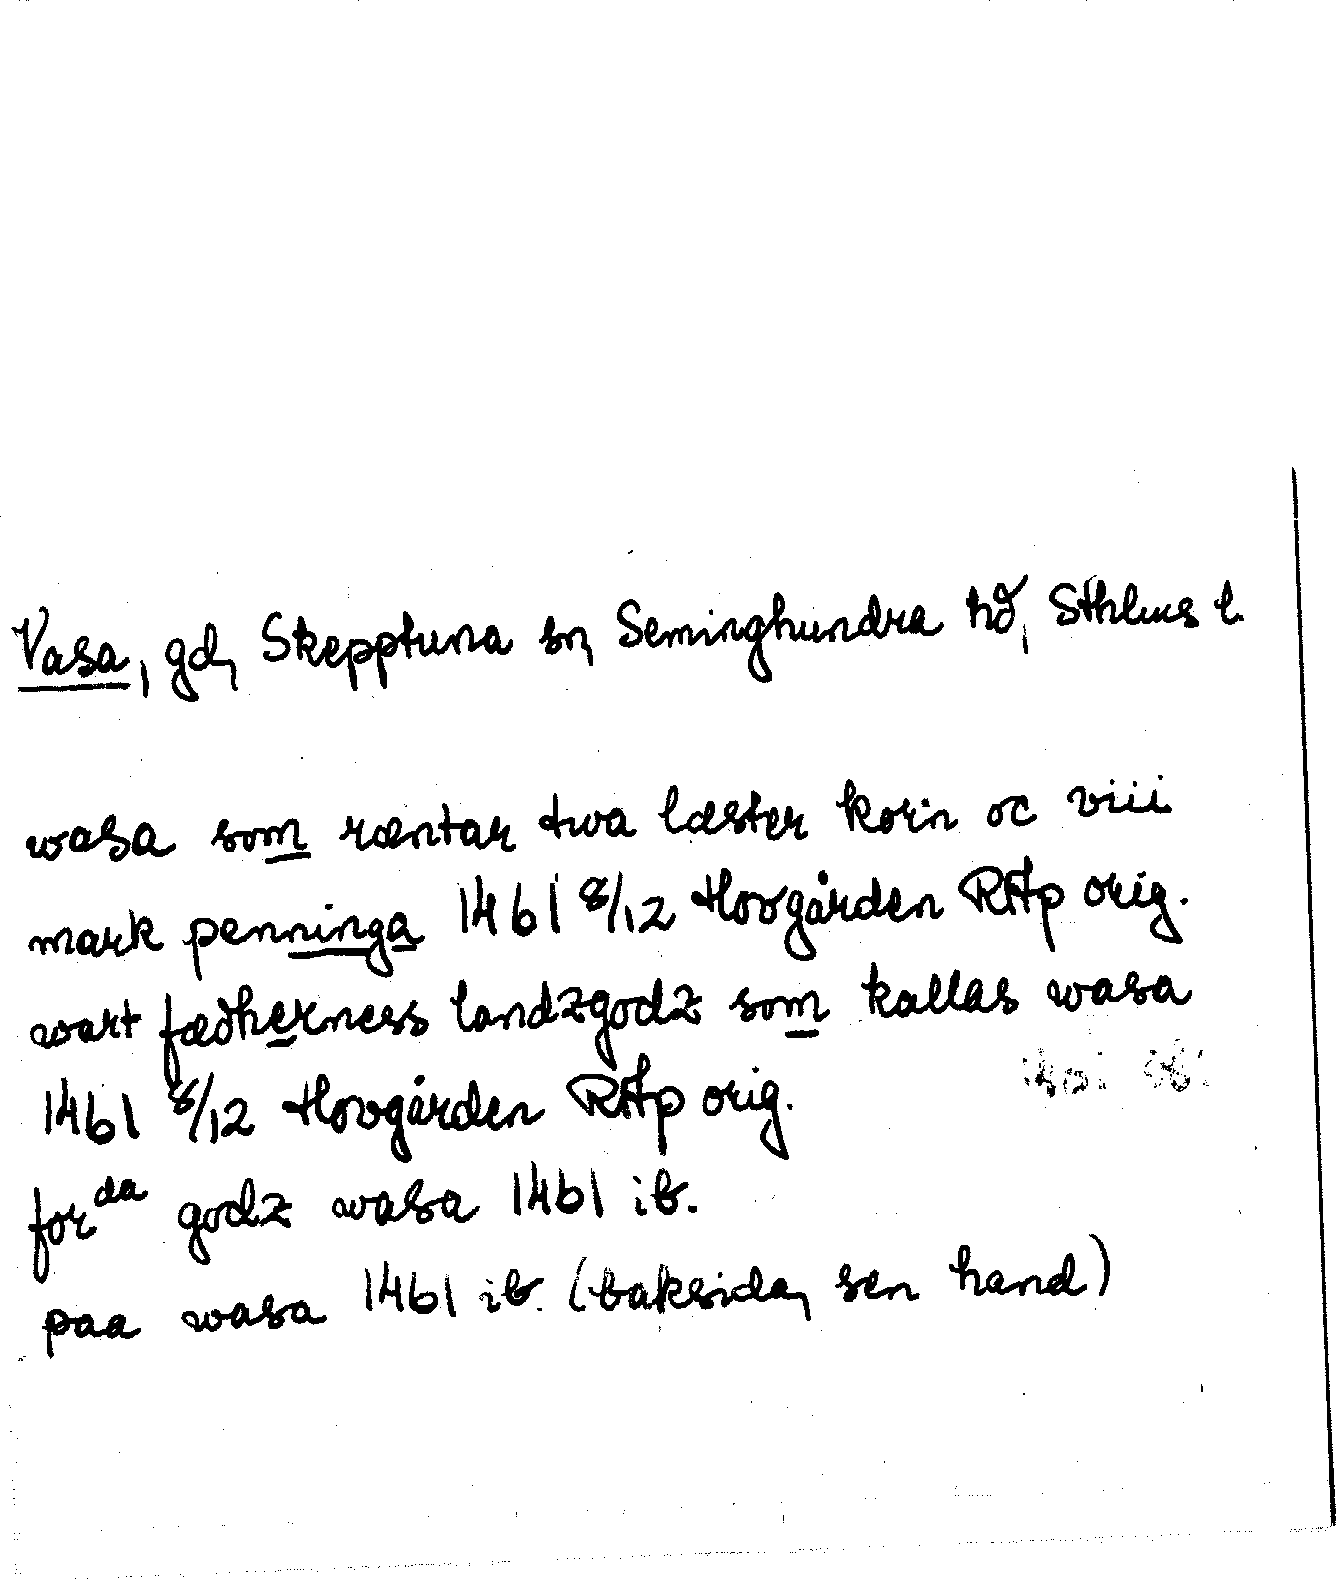 Vasa, gd, Skepptuna sn, Seminghundra hd, Sthlms l.
wasa som ræntar twa læster korn oc viii
mark penninga 1461 8/12 Hovgården RAp orig.
wart fædherness landzgodz som kallas wasa
1461 8/12 Hovgården RAp orig.
for da godz wasa 1461 ib.
paa wasa 1461 ib. (baksida, sen hand)